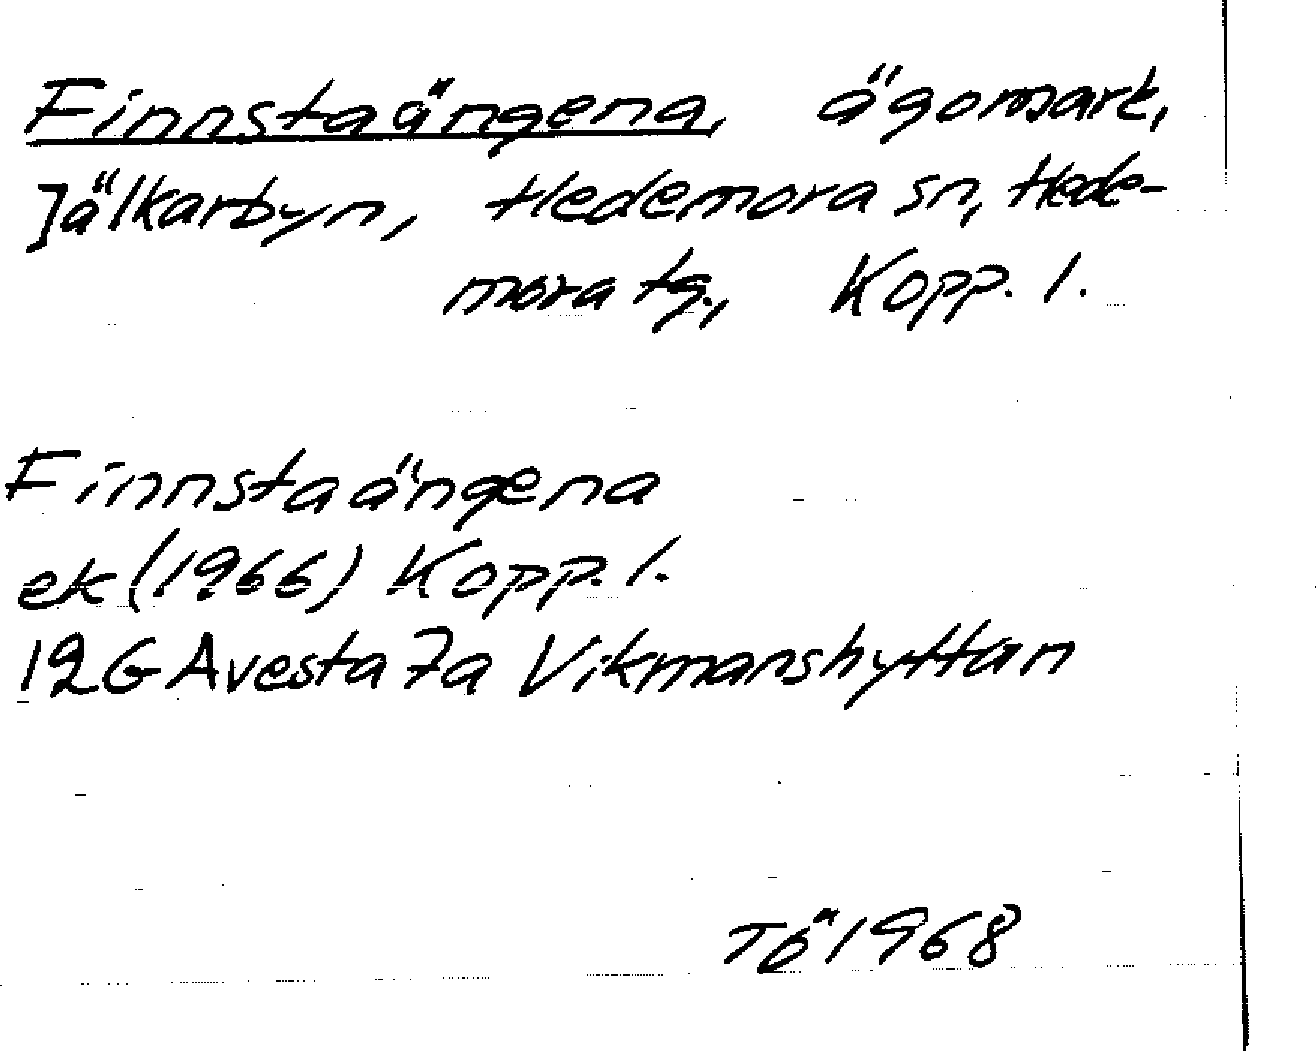 Finnstaängena, ägomark,
Jälkarbyn, Hedemora sn, Hede-
mora tg., Kopp. l.
Finnstaängena
ek (1966) Kopp. l.
12G Avesta 7a Vikmanshyttan
TÖ 1968